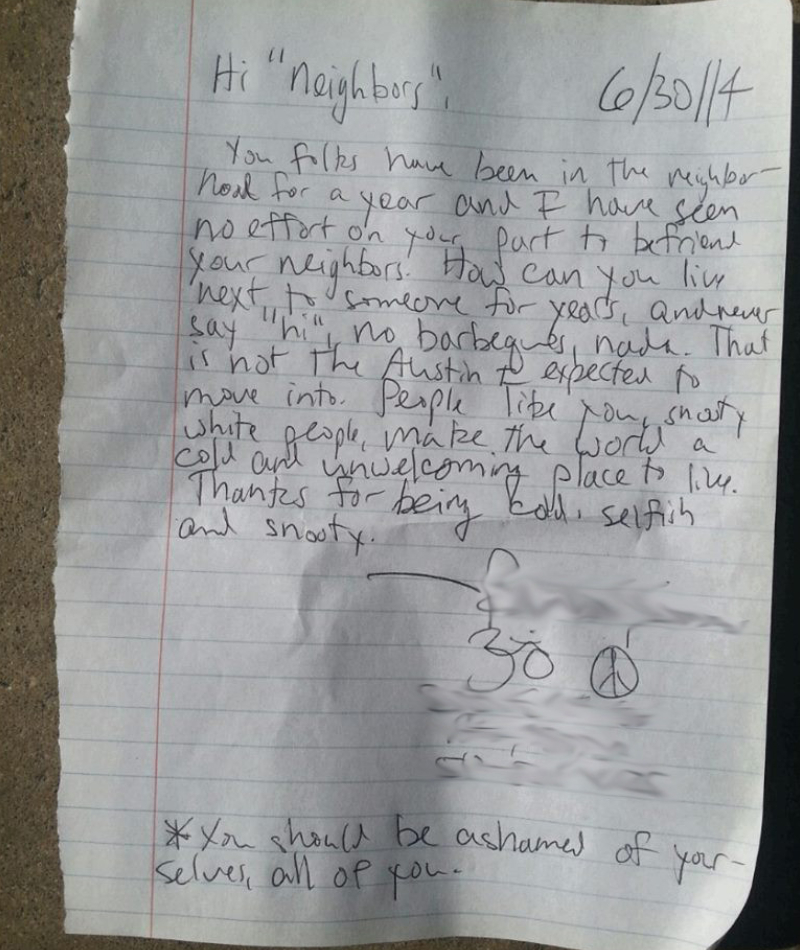 Hi "Neighbors",
6/30/14
You folks have been in the neighbor-
hood for a year and I have seen
no effort on your part to befriend
your neighbors. How can you live
next to someone for years, and never
say "hi", no barbeques, nada. That
is not the Austin I expected to
move into. People like you, snooty
white people, make the world a
cold and unwelcoming place to live.
Thanks for being cold, selfish
and snooty.
* You should be ashamed of your-
selves, all of you.